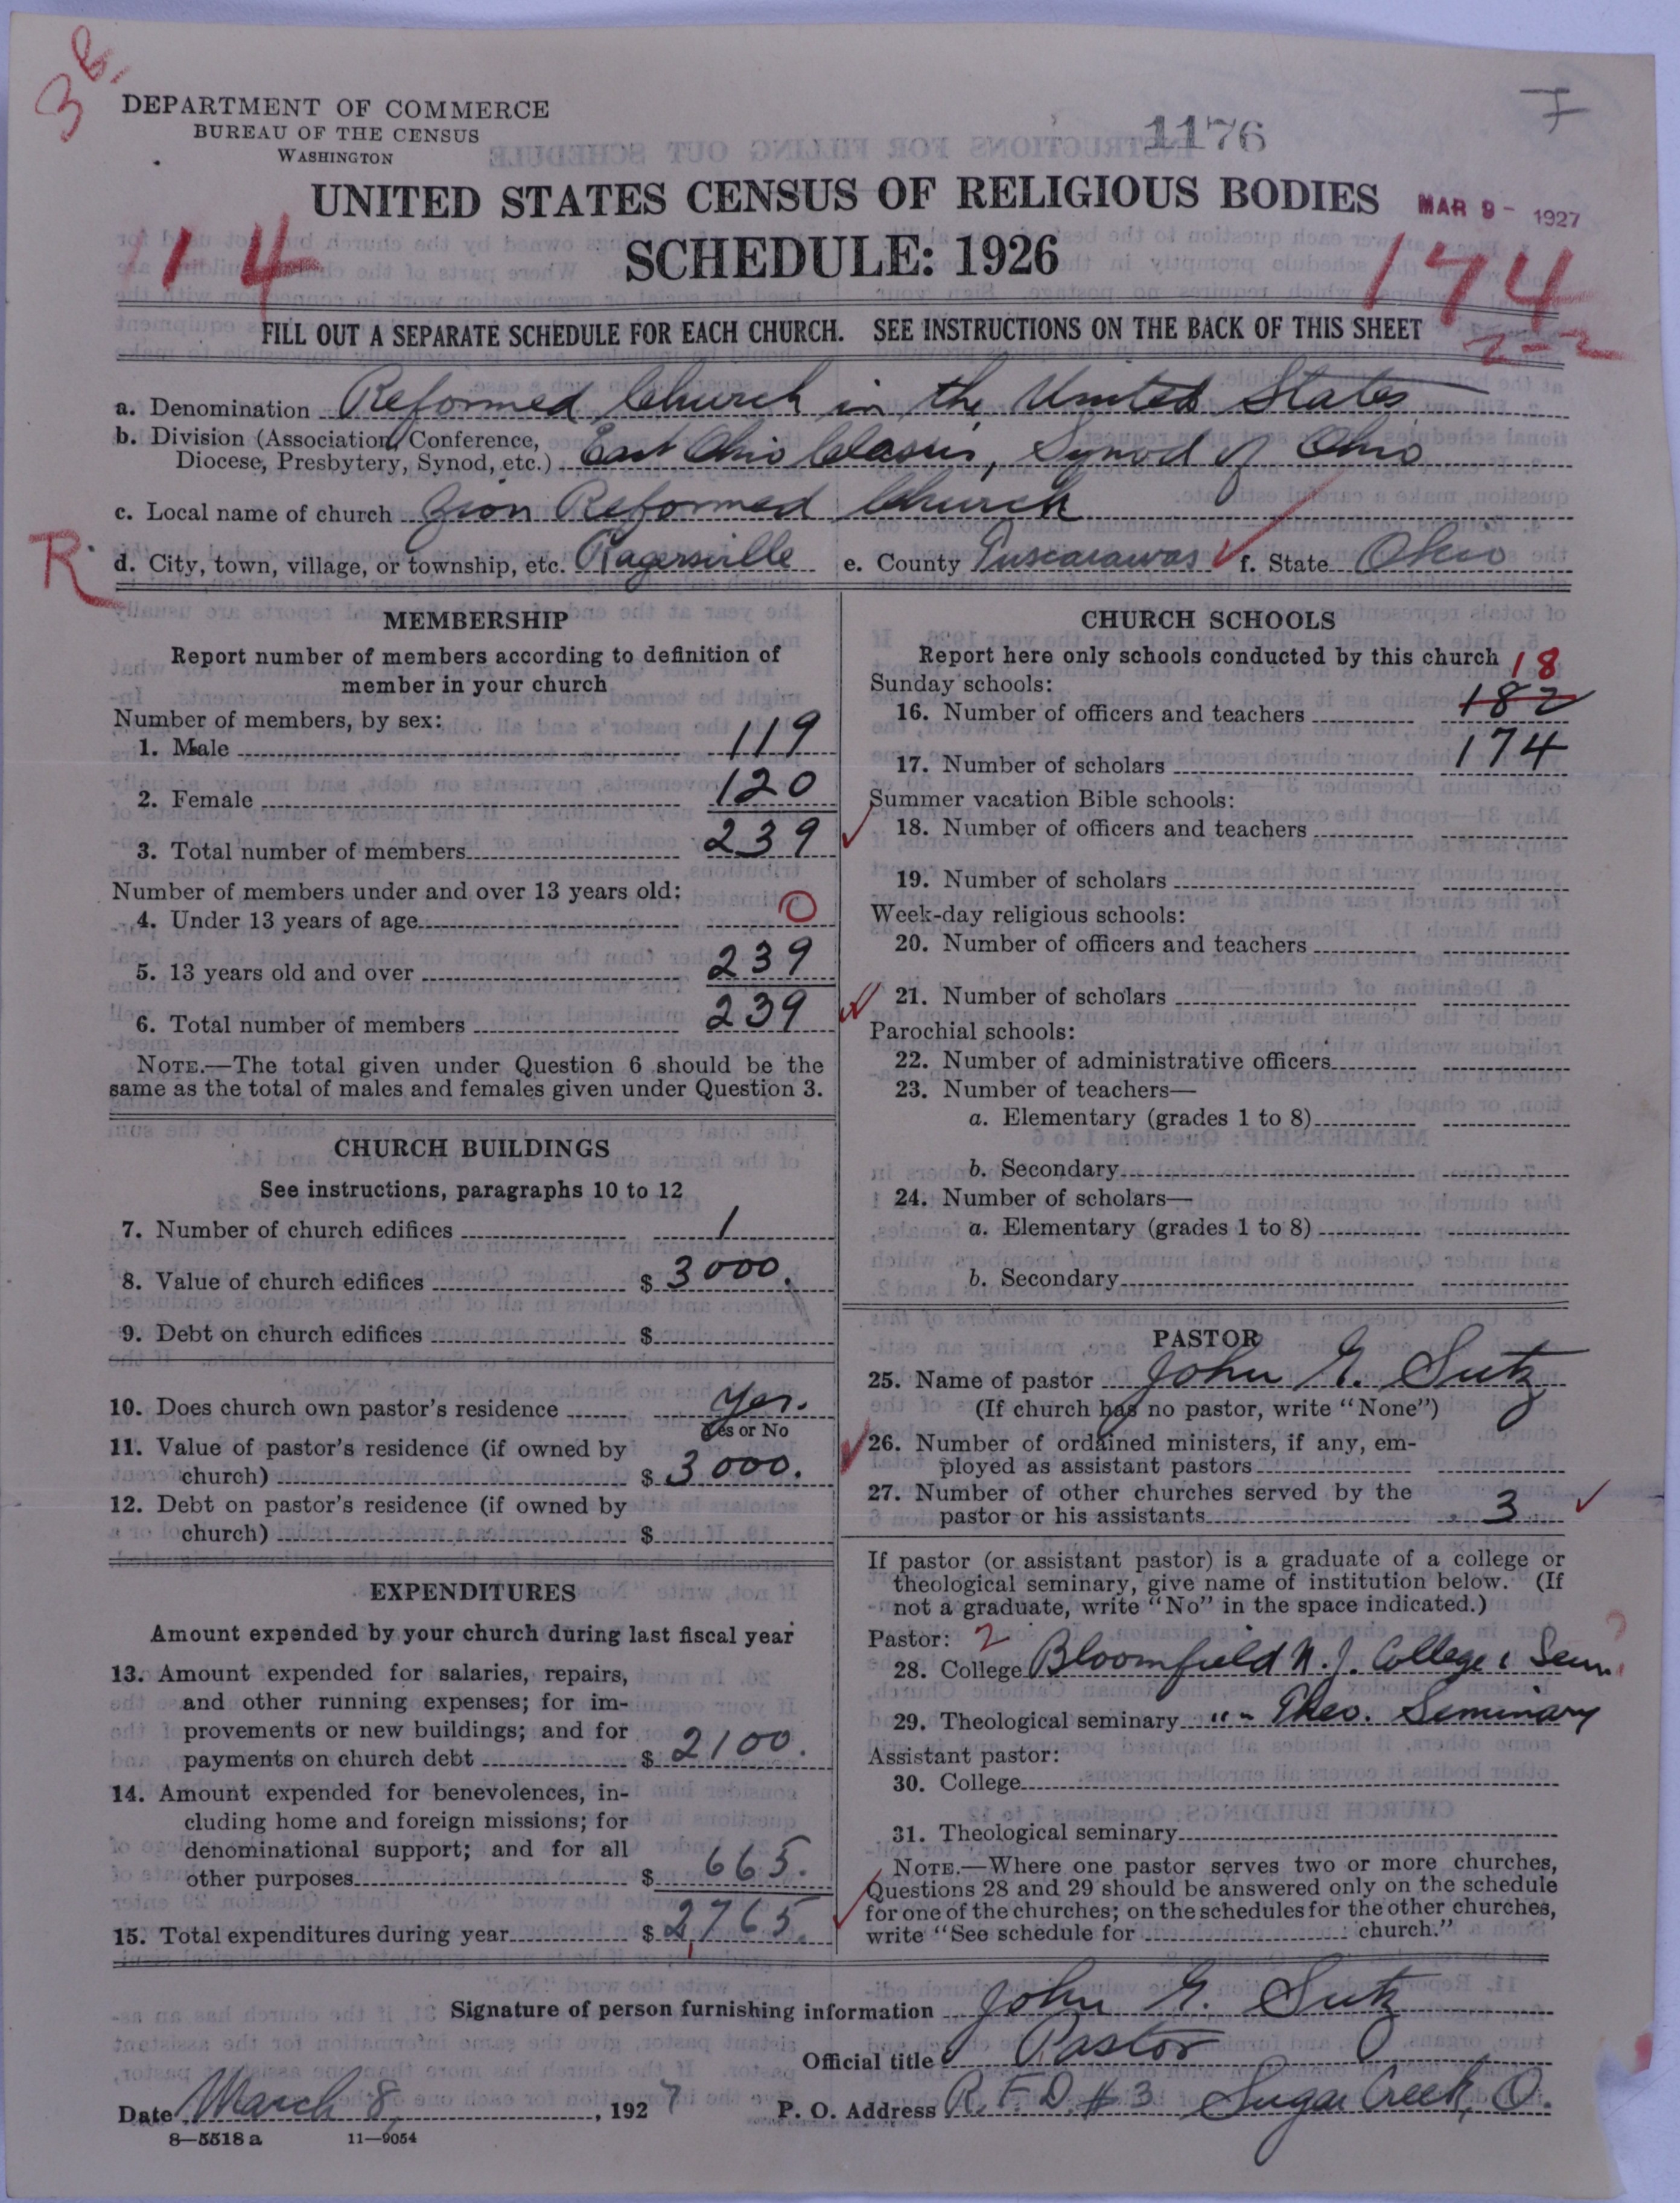 3 B.
DEPARTMENT OF COMMERCE
BUREAU OF THE CENSUS
WASHINGTON
1176
7
UNITED STATES CENSUS OF RELIGIOUS BODIES
MAR 9 - 1927
SCHEDULE: 1926
114
174
2-2
FILL OUT A SEPARATE SCHEDULE FOR EACH CHURCH. SEE INSTRUCTIONS ON THE BACK OF THIS SHEET
a. Denomination Reformed Church in the United States
b. Division (Association, Conference,
Diocese, Presbytery, Synod, etc.) East Ohio Classis, Synod of Ohio
c. Local name of church Zion Reformed Church
R.
d. City, town, village, or township, etc. Ragersville e. County Tuscarawas f. State Ohio
MEMBERSHIP
Report number of members according to definition of
member in your church
Number of members, by sex:
1. Male 119
2. Female 120
3. Total number of members 239
Number of members under and over 13 years old:
4. Under 13 years of age 0
5. 13 years old and over 239
6. Total number of members 239
NOTE.—The total given under Question 6 should be the
same as the total of males and females given under Question 3.
CHURCH BUILDINGS
See instructions, paragraphs 10 to 12
7. Number of church edifices 1
8. Value of church edifices $ 3000.
9. Debt on church edifices $
10. Does church own pastor's residence Yes.
Yes or No
11. Value of pastor's residence (if owned by
church) $ 3000.
12. Debt on pastor's residence (if owned by
church) $
EXPENDITURES
Amount expended by your church during last fiscal year
13. Amount expended for salaries, repairs,
and other running expenses; for im-
provements or new buildings; and for
payments on church debt $ 2100.
14. Amount expended for benevolences, in-
cluding home and foreign missions; for
denominational support; and for all
other purposes $ 665.
15. Total expenditures during year $ 2,765.
CHURCH SCHOOLS
Report here only schools conducted by this church
Sunday schools:
18
16. Number of officers and teachers 182
17. Number of scholars 174
Summer vacation Bible schools:
18. Number of officers and teachers
19. Number of scholars
Week-day religious schools:
20. Number of officers and teachers
21. Number of scholars
Parochial schools:
22. Number of administrative officers
23. Number of teachers—
a. Elementary (grades 1 to 8)
b. Secondary
24. Number of scholars—
a. Elementary (grades 1 to 8)
b. Secondary
PASTOR
25. Name of pastor John G. Sutz
(If church has no pastor, write "None")
26. Number of ordained ministers, if any, em-
ployed as assistant pastors
27. Number of other churches served by the
pastor or his assistants 3
If pastor (or assistant pastor) is a graduate of a college or
theological seminary, give name of institution below. (If
not a graduate, write "No" in the space indicated.)
Pastor: 2
28. College Bloomfield N.J. College & Sem.
29. Theological seminary " " Theo. Seminary
Assistant pastor:
30. College
31. Theological seminary
NOTE.—Where one pastor serves two or more churches,
Questions 28 and 29 should be answered only on the schedule
for one of the churches; on the schedules for the other churches,
write "See schedule for church."
Signature of person furnishing information John G. Sutz
Official title Pastor
Date March 8, 1927 P. O. Address R. F. D. # 3 Sugar Creek, O.
8—5518 a 11—9054